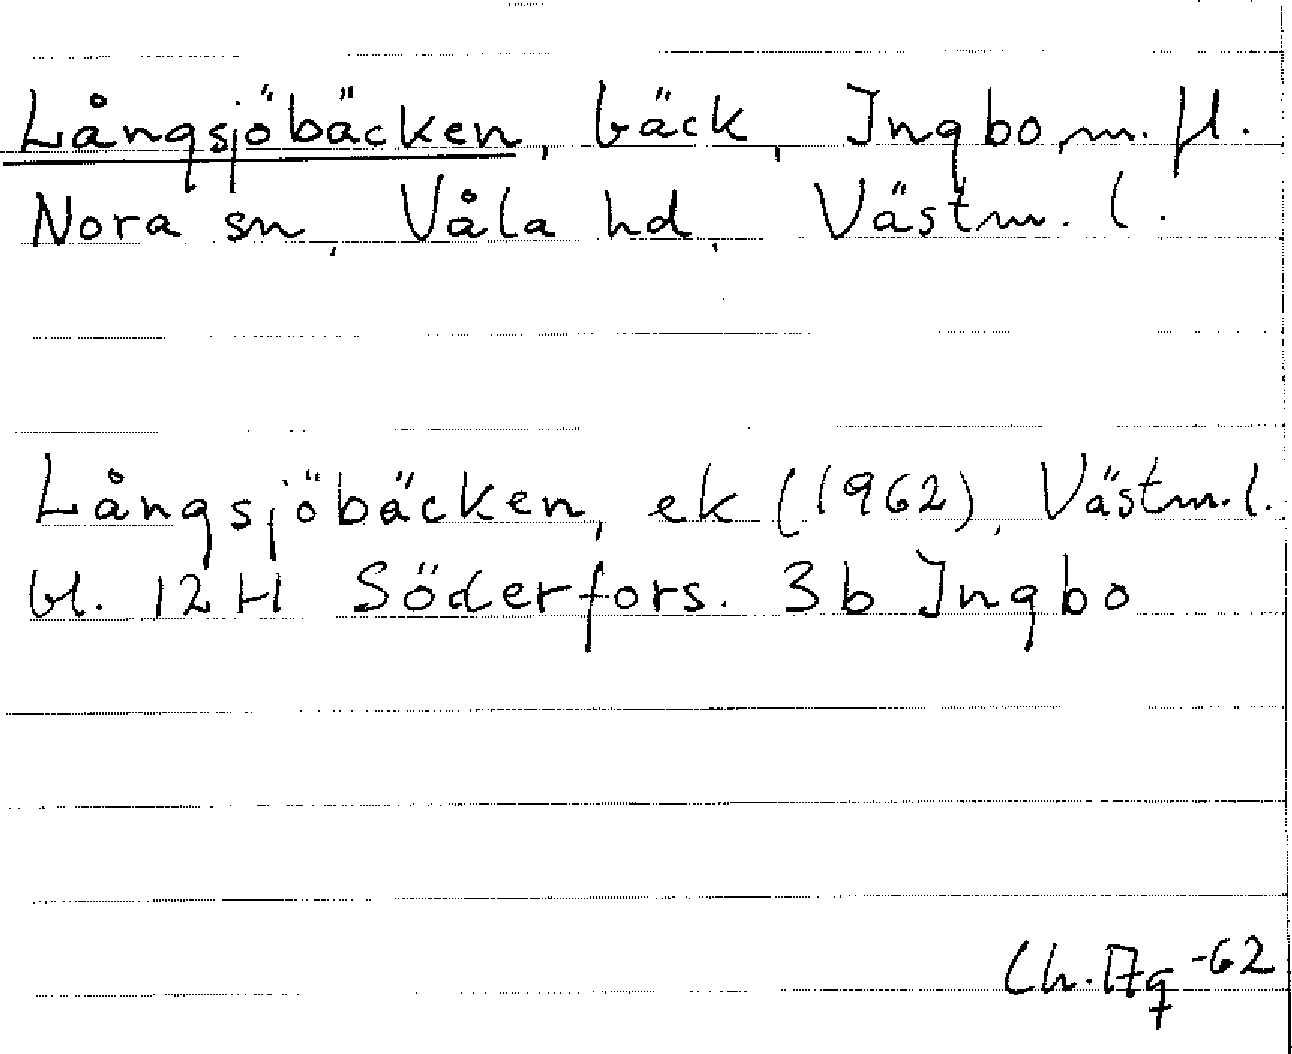 Långsjöbäcken, bäck, Ingbo, m. fl.
Nora sn, Våla hd, Västm. l.
Långsjöbäcken, ek (1962), Västm. l.
bl. 12 H Söderfors. 3 b Ingbo
Ch. -62